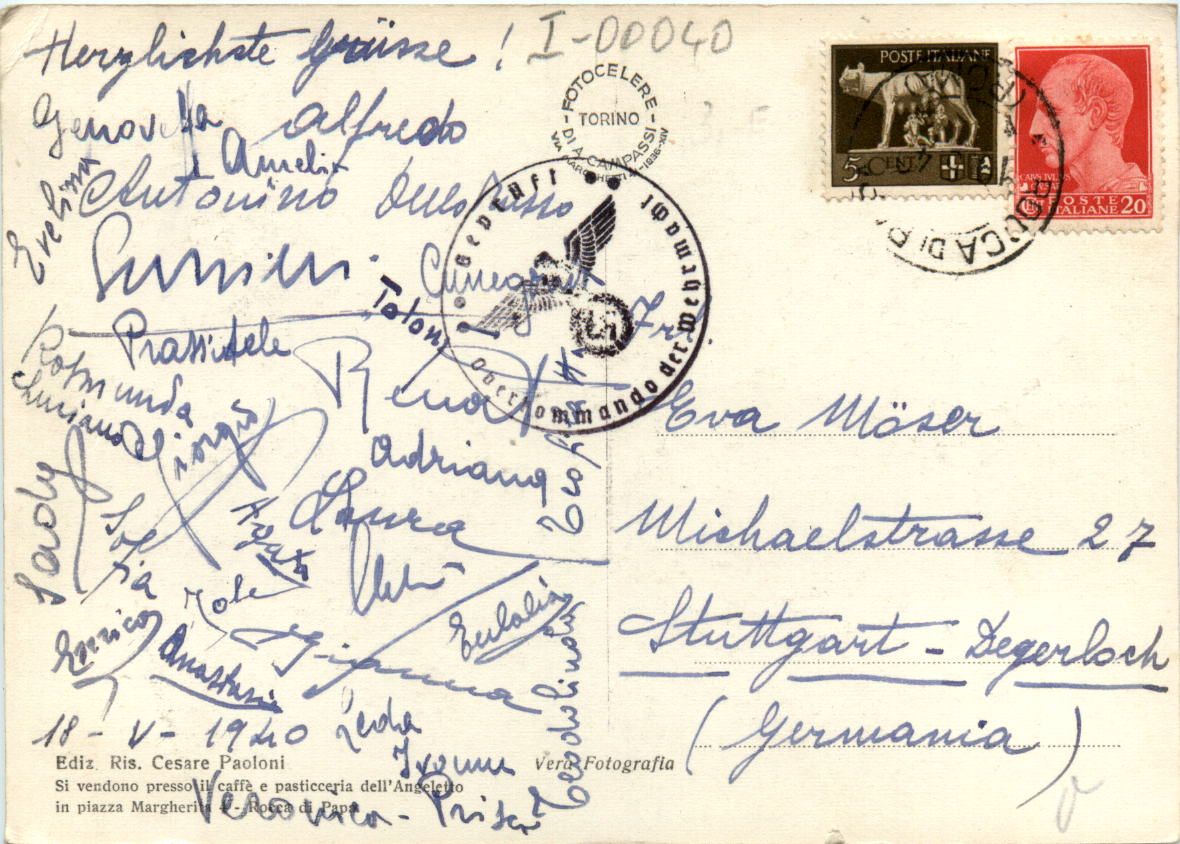 Herzlichste Grüsse !
I-00040
Genoveffa Alfredo
Amelia
Evelina
Antonino
Cunegonda
Prassitele
Rosmunda
Rena
Luciano
Giorgio
Adriana
Laura
Agata
Sofia
Jole
Enrico
Anastasia
Gianna
Eulalia
Teodolinda
18 - V - 1940 Leda
Ivonne
Veronica - Prisca
FOTOCELERE
TORINO
DI A. CAMPASSI
Geprüft
Oberkommando der Wehrmacht
POSTE ITALIANE
5 CENT
CAIVS IVLIVS
CAESAR
POSTE
ITALIANE 20
ROCCA DI PAPA
Frl.
Eva Möser
Michaelstrasse 27
Stuttgart - Degerloch
(Germania)
Ediz. Ris. Cesare Paoloni
Vera Fotografia
Si vendono presso il caffè e pasticceria dell'Angeletto
in piazza Margherita 4 - Rocca di Papa